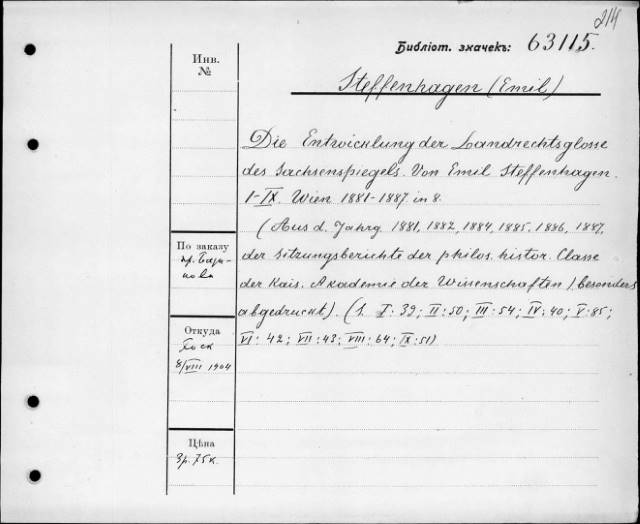 214
Библіот. значекъ: 63115.
Инв.
№
Steffenhagen (Emil)
Die Entwicklung der Landrechtsglosse
des Sachsenspiegels. Von Emil Steffenhagen.
I-IX. Wien 1881-1887. in 8.
(Aus d. Jahrg. 1881, 1882, 1884, 1885, 1886, 1887,
der Sitzungsberichte der philos. histor. Classe
der Kais. Akademie der Wissenschaften / besonders
abgedruckt). (S. I: 39; II: 50; III: 54; IV: 40; V: 85;
VI: 42; VII: 43; VIII: 64; IX: 51)
По заказу
Откуда
8/VIII 1904
Цѣна
3р. 75к.